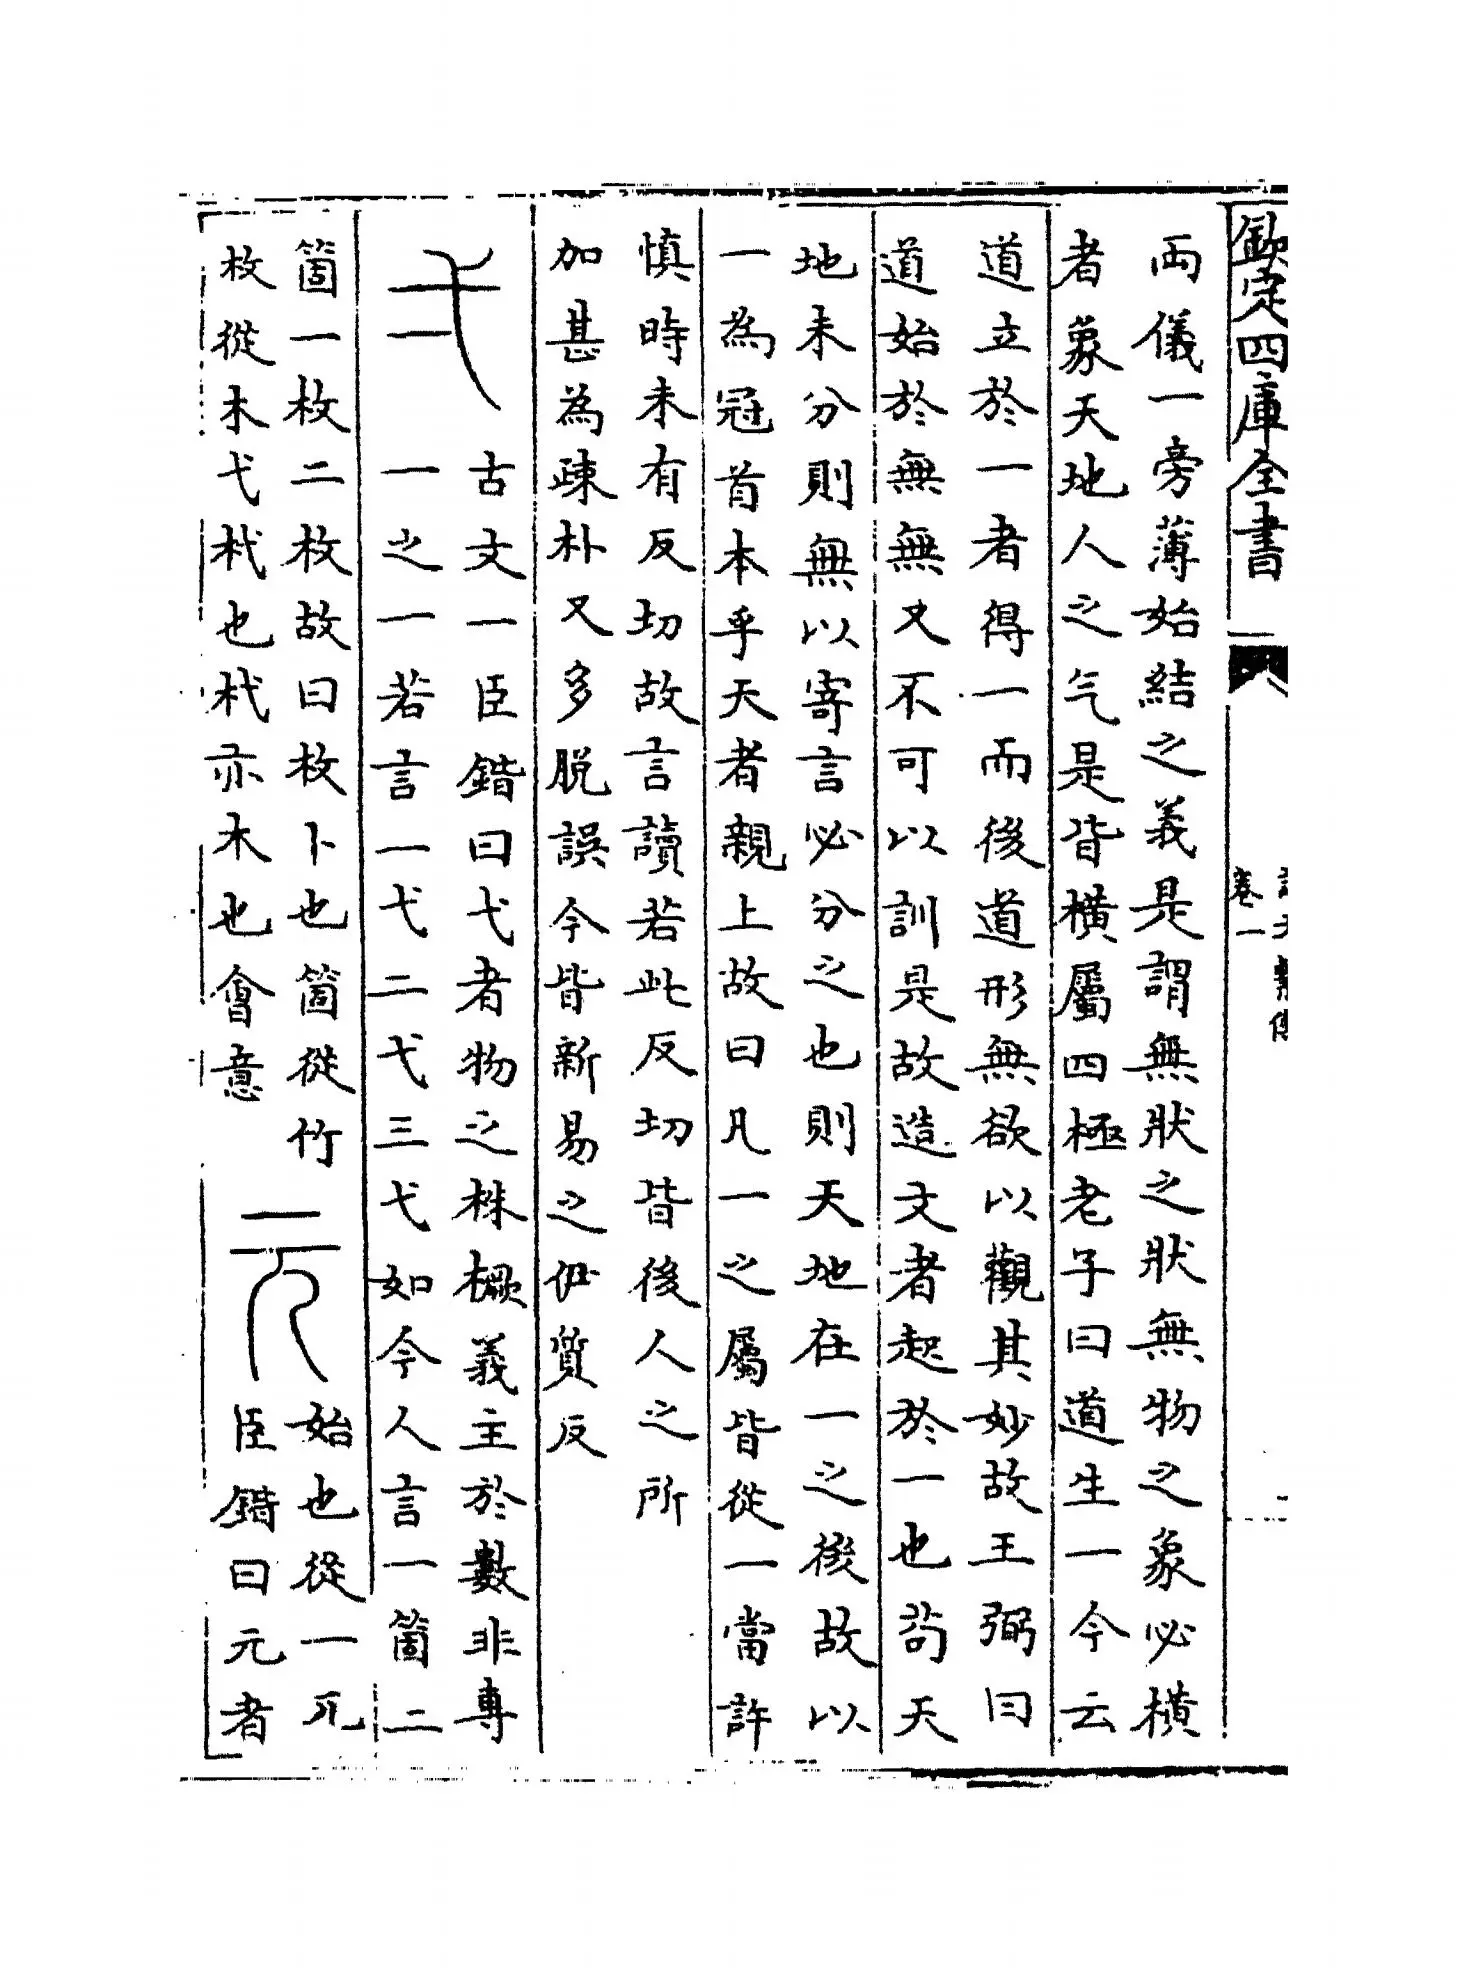 欽定四庫全書
卷一
両儀一旁薄始結之義是謂無狀之狀無物之象必横
者象天地人之气是皆横屬四極老子曰道生一今云
道立於一者得一而後道形無欲以觀其妙故王弼曰
道始於無無又不可以訓是故造文者起於一也苟天
地未分則無以寄言必分之也則天地在一之後故以
一為冠首本乎天者親上故曰凡一之屬皆從一當許
慎時未有反切故言讀若此反切皆後人之所
加甚為疎朴又多脱誤今皆新易之伊質反
弌
古文一臣鍇曰弋者物之株橛義主於數非專
一之一若言一弋二弋三弋如今人言一箇二
箇一枚二枚故曰枚卜也箇從竹
枚從木弋杙也杙亦木也會意
元
始也從一兀
臣鍇曰元者